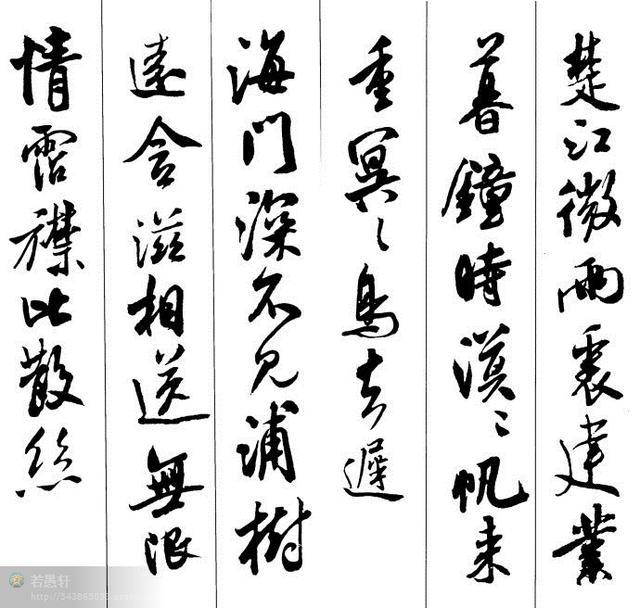 楚江微雨裏建業
暮鐘時漠〻帆来
重冥〻鳥去遲
海門深不見浦樹
遠含滋相送無限
情霑襟比散絲
若愚轩